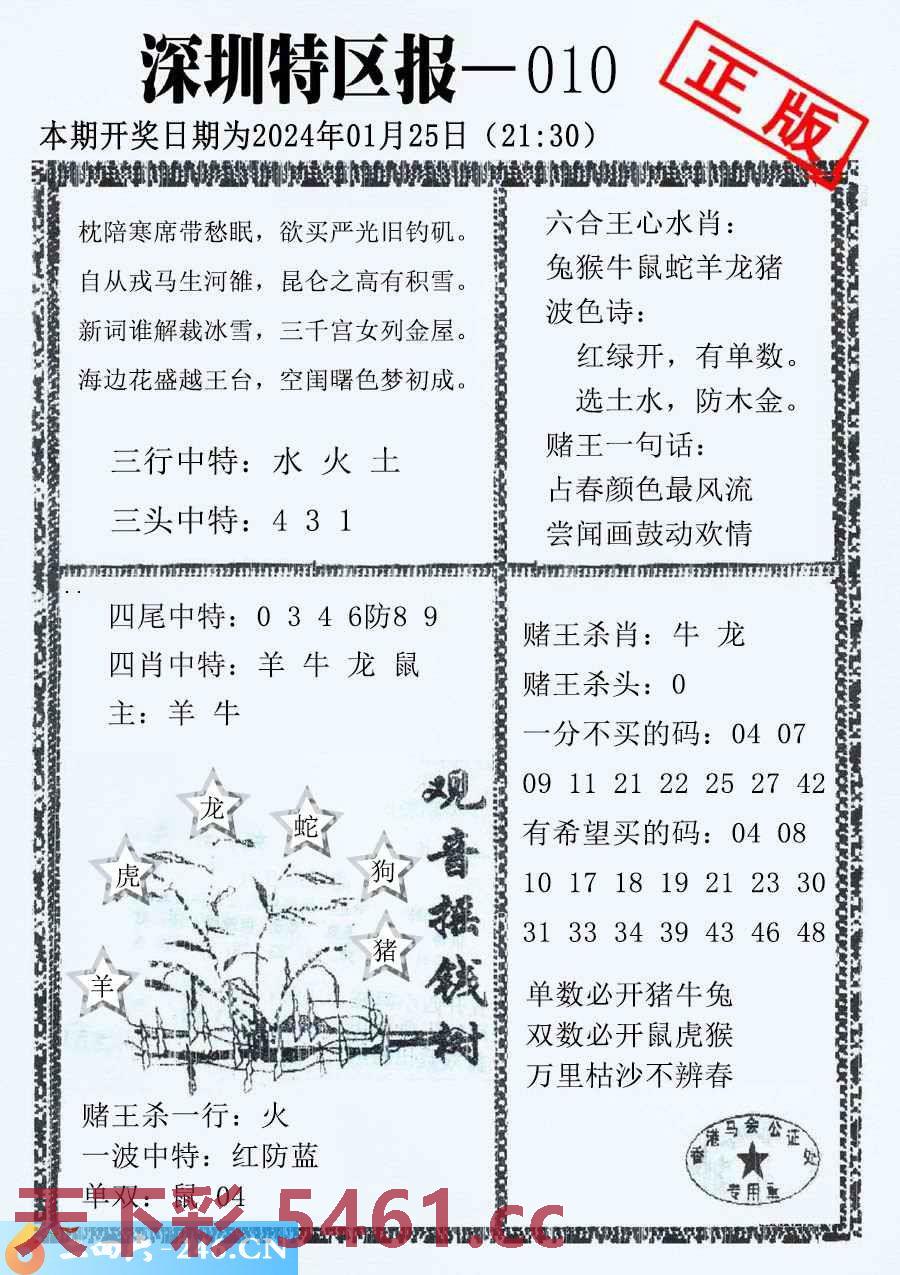 深圳特区报—010
正版
本期开奖日期为2024年01月25日（21:30）
枕陪寒席带愁眠，欲买严光旧钓矶。
自从戎马生河雒，昆仑之高有积雪。
新词谁解裁冰雪，三千宫女列金屋。
海边花盛越王台，空闺曙色梦初成。
三行中特：水 火 土
三头中特：4 3 1
六合王心水肖：
兔猴牛鼠蛇羊龙猪
波色诗：
红绿开，有单数。
选土水，防木金。
赌王一句话：
占春颜色最风流
尝闻画鼓动欢情
四尾中特：0 3 4 6防8 9
四肖中特：羊 牛 龙 鼠
主：羊 牛
龙
蛇
虎
狗
猪
羊
观音摇钱树
赌王杀一行：火
一波中特：红防蓝
单双：鼠 04
赌王杀肖：牛 龙
赌王杀头：0
一分不买的码：04 07
09 11 21 22 25 27 42
有希望买的码：04 08
10 17 18 19 21 23 30
31 33 34 39 43 46 48
单数必开猪牛兔
双数必开鼠虎猴
万里枯沙不辨春
香港马会公证处
专用章
天下彩 5461.cc
-246.CN